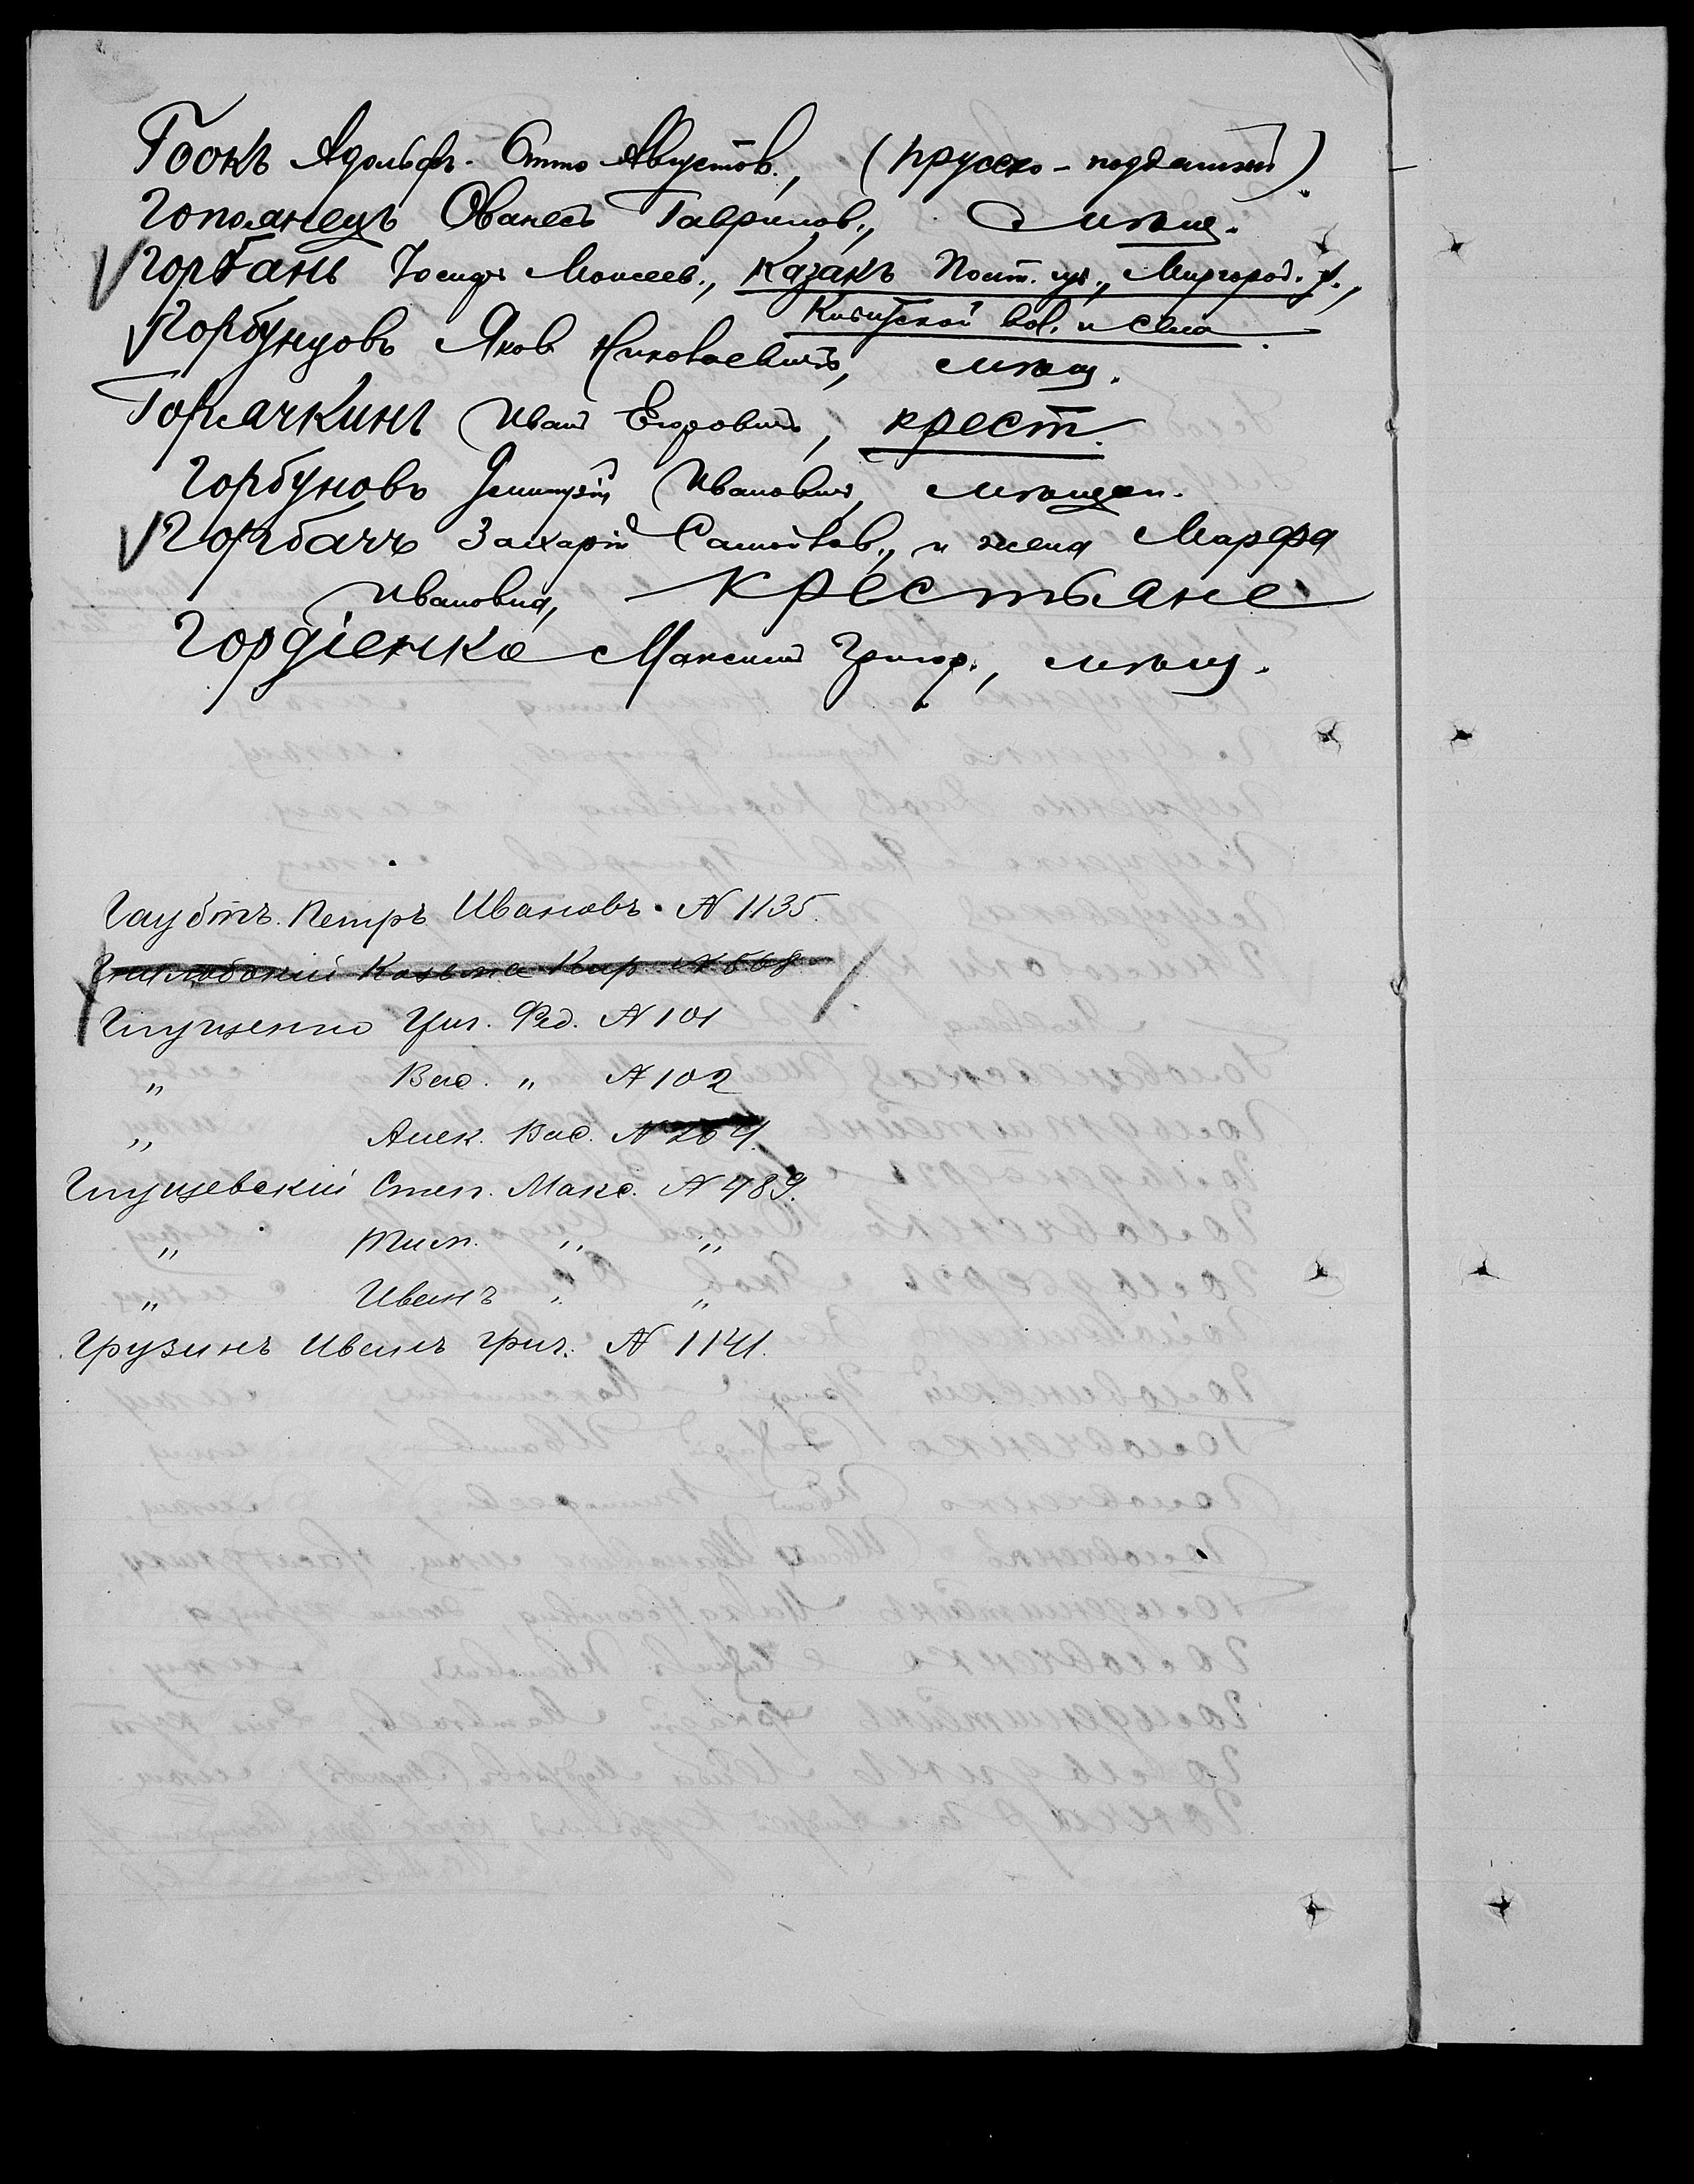 Гоокъ Адольфъ-Отто Августов., (прусско-подданный)
Гополянецъ Ованесъ Гаврилов., мѣщ.
Горбань Іосифъ Моисеев., казакъ Полт. губ., Миргород. у.,
Кибицской вол. и села
Горбунцовъ Яков Николаевичъ, мѣщ.
Горячкинъ Иванъ Егоровичъ, крест.
Горбуновъ Димитрій Ивановичъ, мѣщан.
Горбачъ Захарій Самойлов., и жена Марфа
Ивановна, крестьяне
Гордіенко Максимъ Григор., мѣщ.
Гаубтъ Петръ Ивановъ. № 1135.
Козьма Кир. № 568
Глущенко Григ. Фед. № 101
„ Вас. „ № 102
„ Алек. Вас. № 264.
Глущевскій Степ. Макс. № 489.
„ Тим. „ „
„ Иванъ „ „
Грузинъ Иванъ Григ. № 1141.